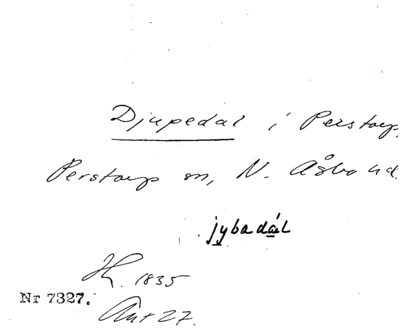 Djupedal i Perstorp,
Perstorp sn, N. Åsbo hd.
jybadál
Hz. 1835
Nr 7327.
Ant 27.